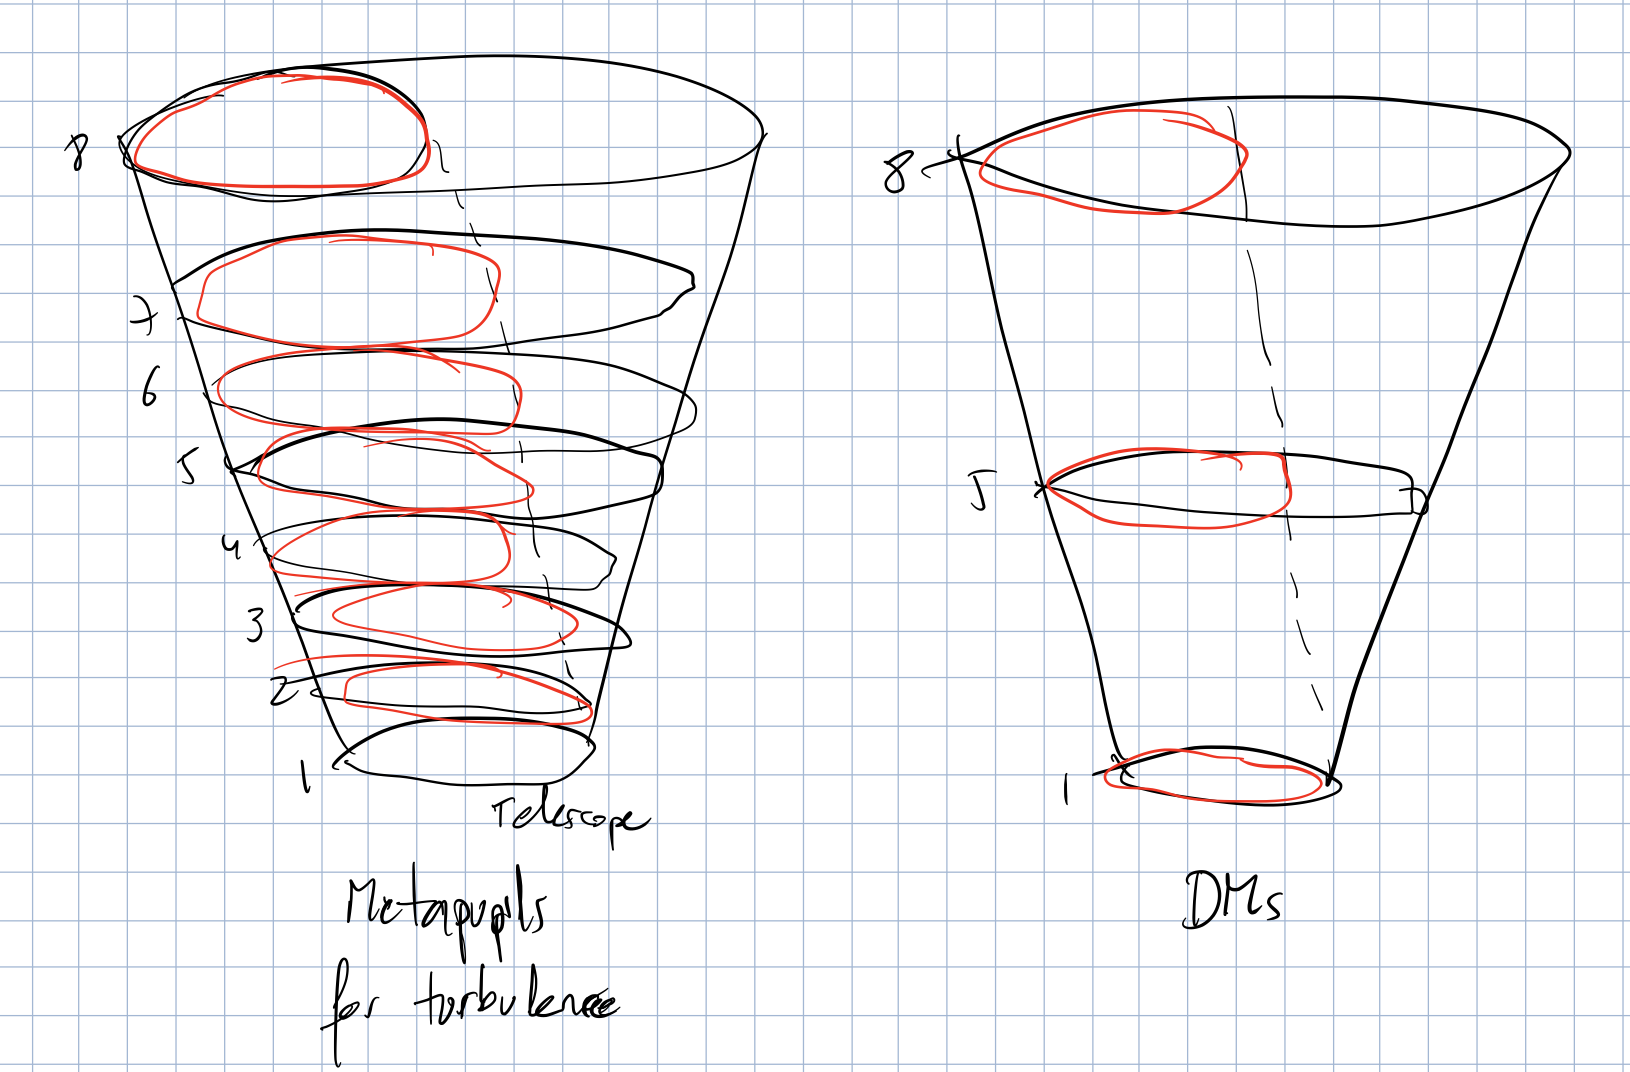 8
7
6
5
4
3
2
1
Telescope
Metapupils
for turbulence
8
5
1
DMs